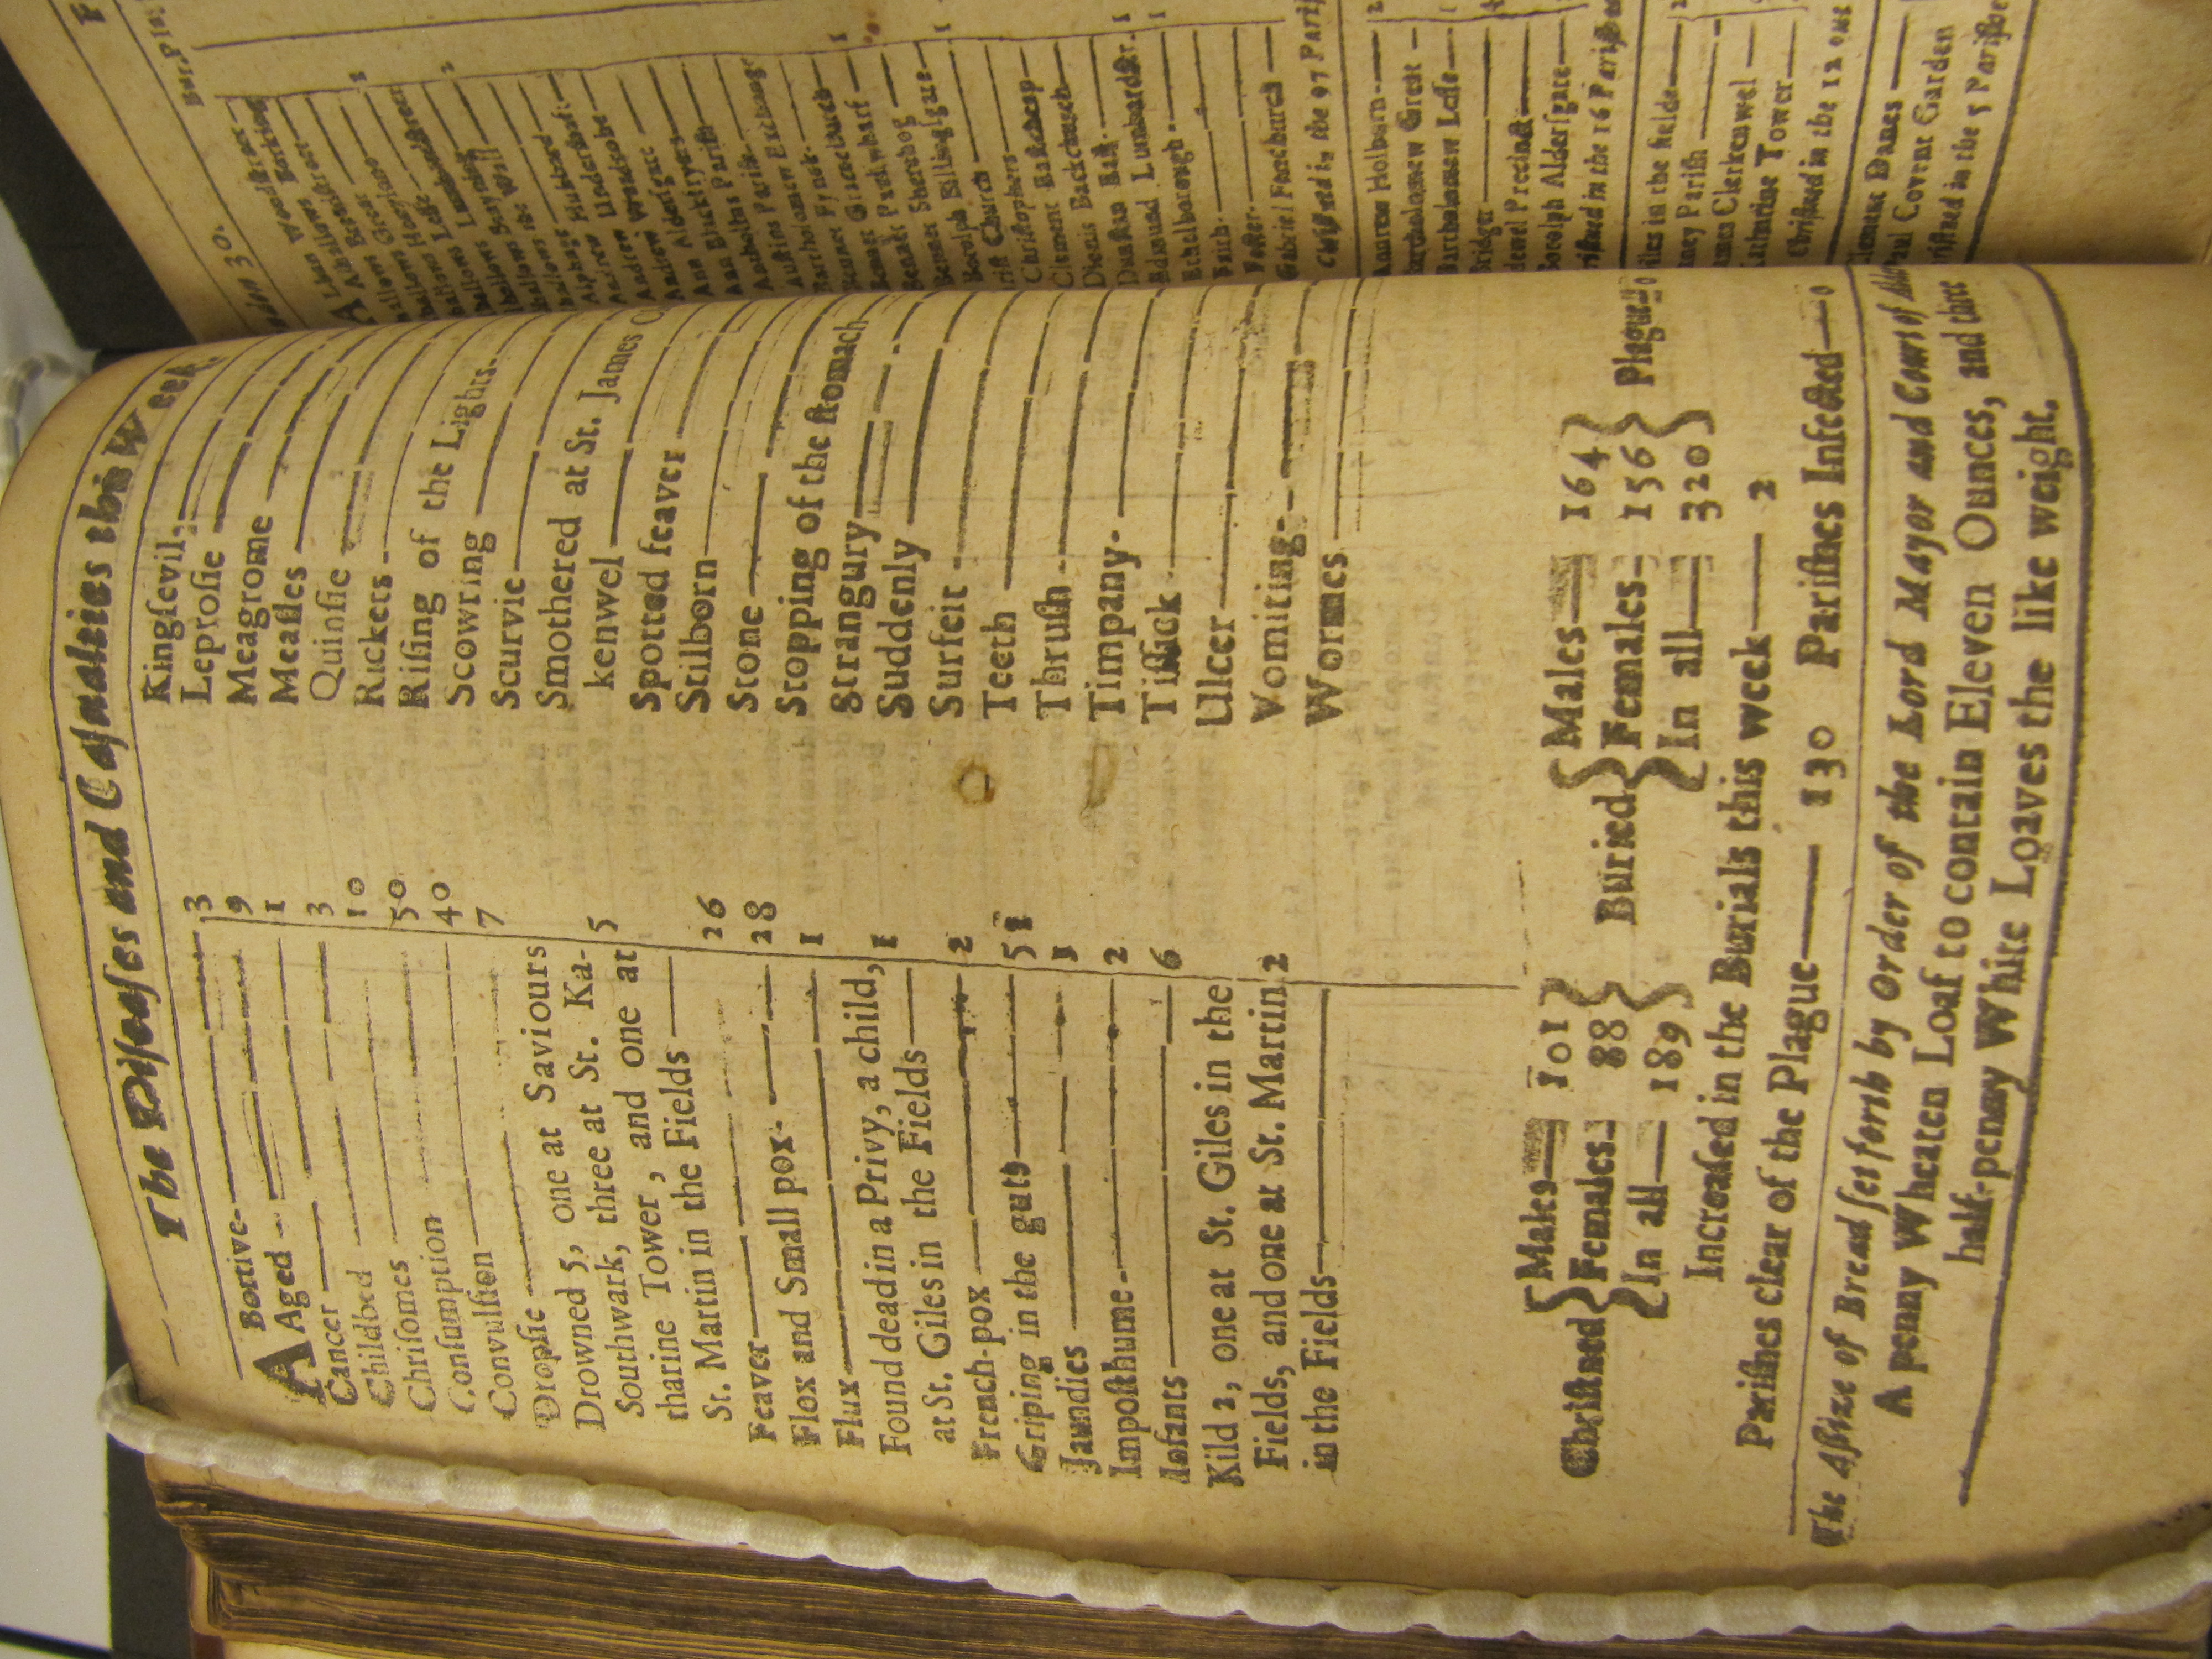 The Diſeaſes and Caſualties this Week.
ABortive 3
Aged 9
Cancer 1
Childbed 3
Chriſomes 10
Conſumption 50
Convulſion 40
Dropſie 7
Drowned 5, one at Saviours
Southwark, three at St. Ka- 5
tharine Tower, and one at
St. Martin in the Fields
Feaver 26
Flox and Small pox 28
Flux 1
Found dead in a Privy, a child,
at St. Giles in the Fields 1
French-pox 2
Griping in the guts 51
Jaundies 1
Impoſthume 2
Infants 6
Kild 2, one at St. Giles in the
Fields, and one at St. Martin 2
in the Fields
Kingſevil
Leproſie
Meagrome
Meaſles
Quinſie
Rickets
Riſing of the Lights
Scowring
Scurvie
Smothered at St. James
kenwel
Spotted feaver
Stilborn
Stone
Stopping of the ſtomach
Strangury
Suddenly
Surfeit
Teeth
Thruſh
Timpany
Tiſſick
Ulcer
Vomiting
Wormes
Chriſtned { Males 101 Females 88 In all 189 }
Buried { Males 164 Females 156 In all 320 } Plague 0
Increaſed in the Burials this week 2
Pariſhes clear of the Plague 130 Pariſhes Infected 0
The Aſſize of Bread ſet forth by Order of the Lord Mayor and Court of
A penny Wheaten Loaf to contain Eleven Ounces, and three
half-penny White Loaves the like weight.
30.
Woodſtreet
Barking
Andrew Underſhaft
Andrew Wardrobe
Ann Alderſgate
Ann Blackfryers
Bennet Gracechurch
Bennet Paulſwharf 1
Bennet Sherehog
Botolph Billingſgate 1
Chriſt Church
Chriſtophers
Clement Eaſtcheap
Dionis Backchurch
Dunſtan Eaſt 1
Edmund Lumbardſtr. 1
Ethelborough
Faith
Foſter
Gabriel Fanchurch
Chriſtned in the 97 Pariſ
Andrew Holborn 2
Bartholomew Great
Bartholomew Leſſe
Bridget
Bridewel Precinct
Botolph Alderſgate
riſtned in the 16 Pariſhes
iles in the fields
ney Pariſh
ames Clerkenwel
Katharine Tower
Chriſtned in the 12 out
Clement Danes
Paul Covent Garden
riſtned in the 5 Pariſhe